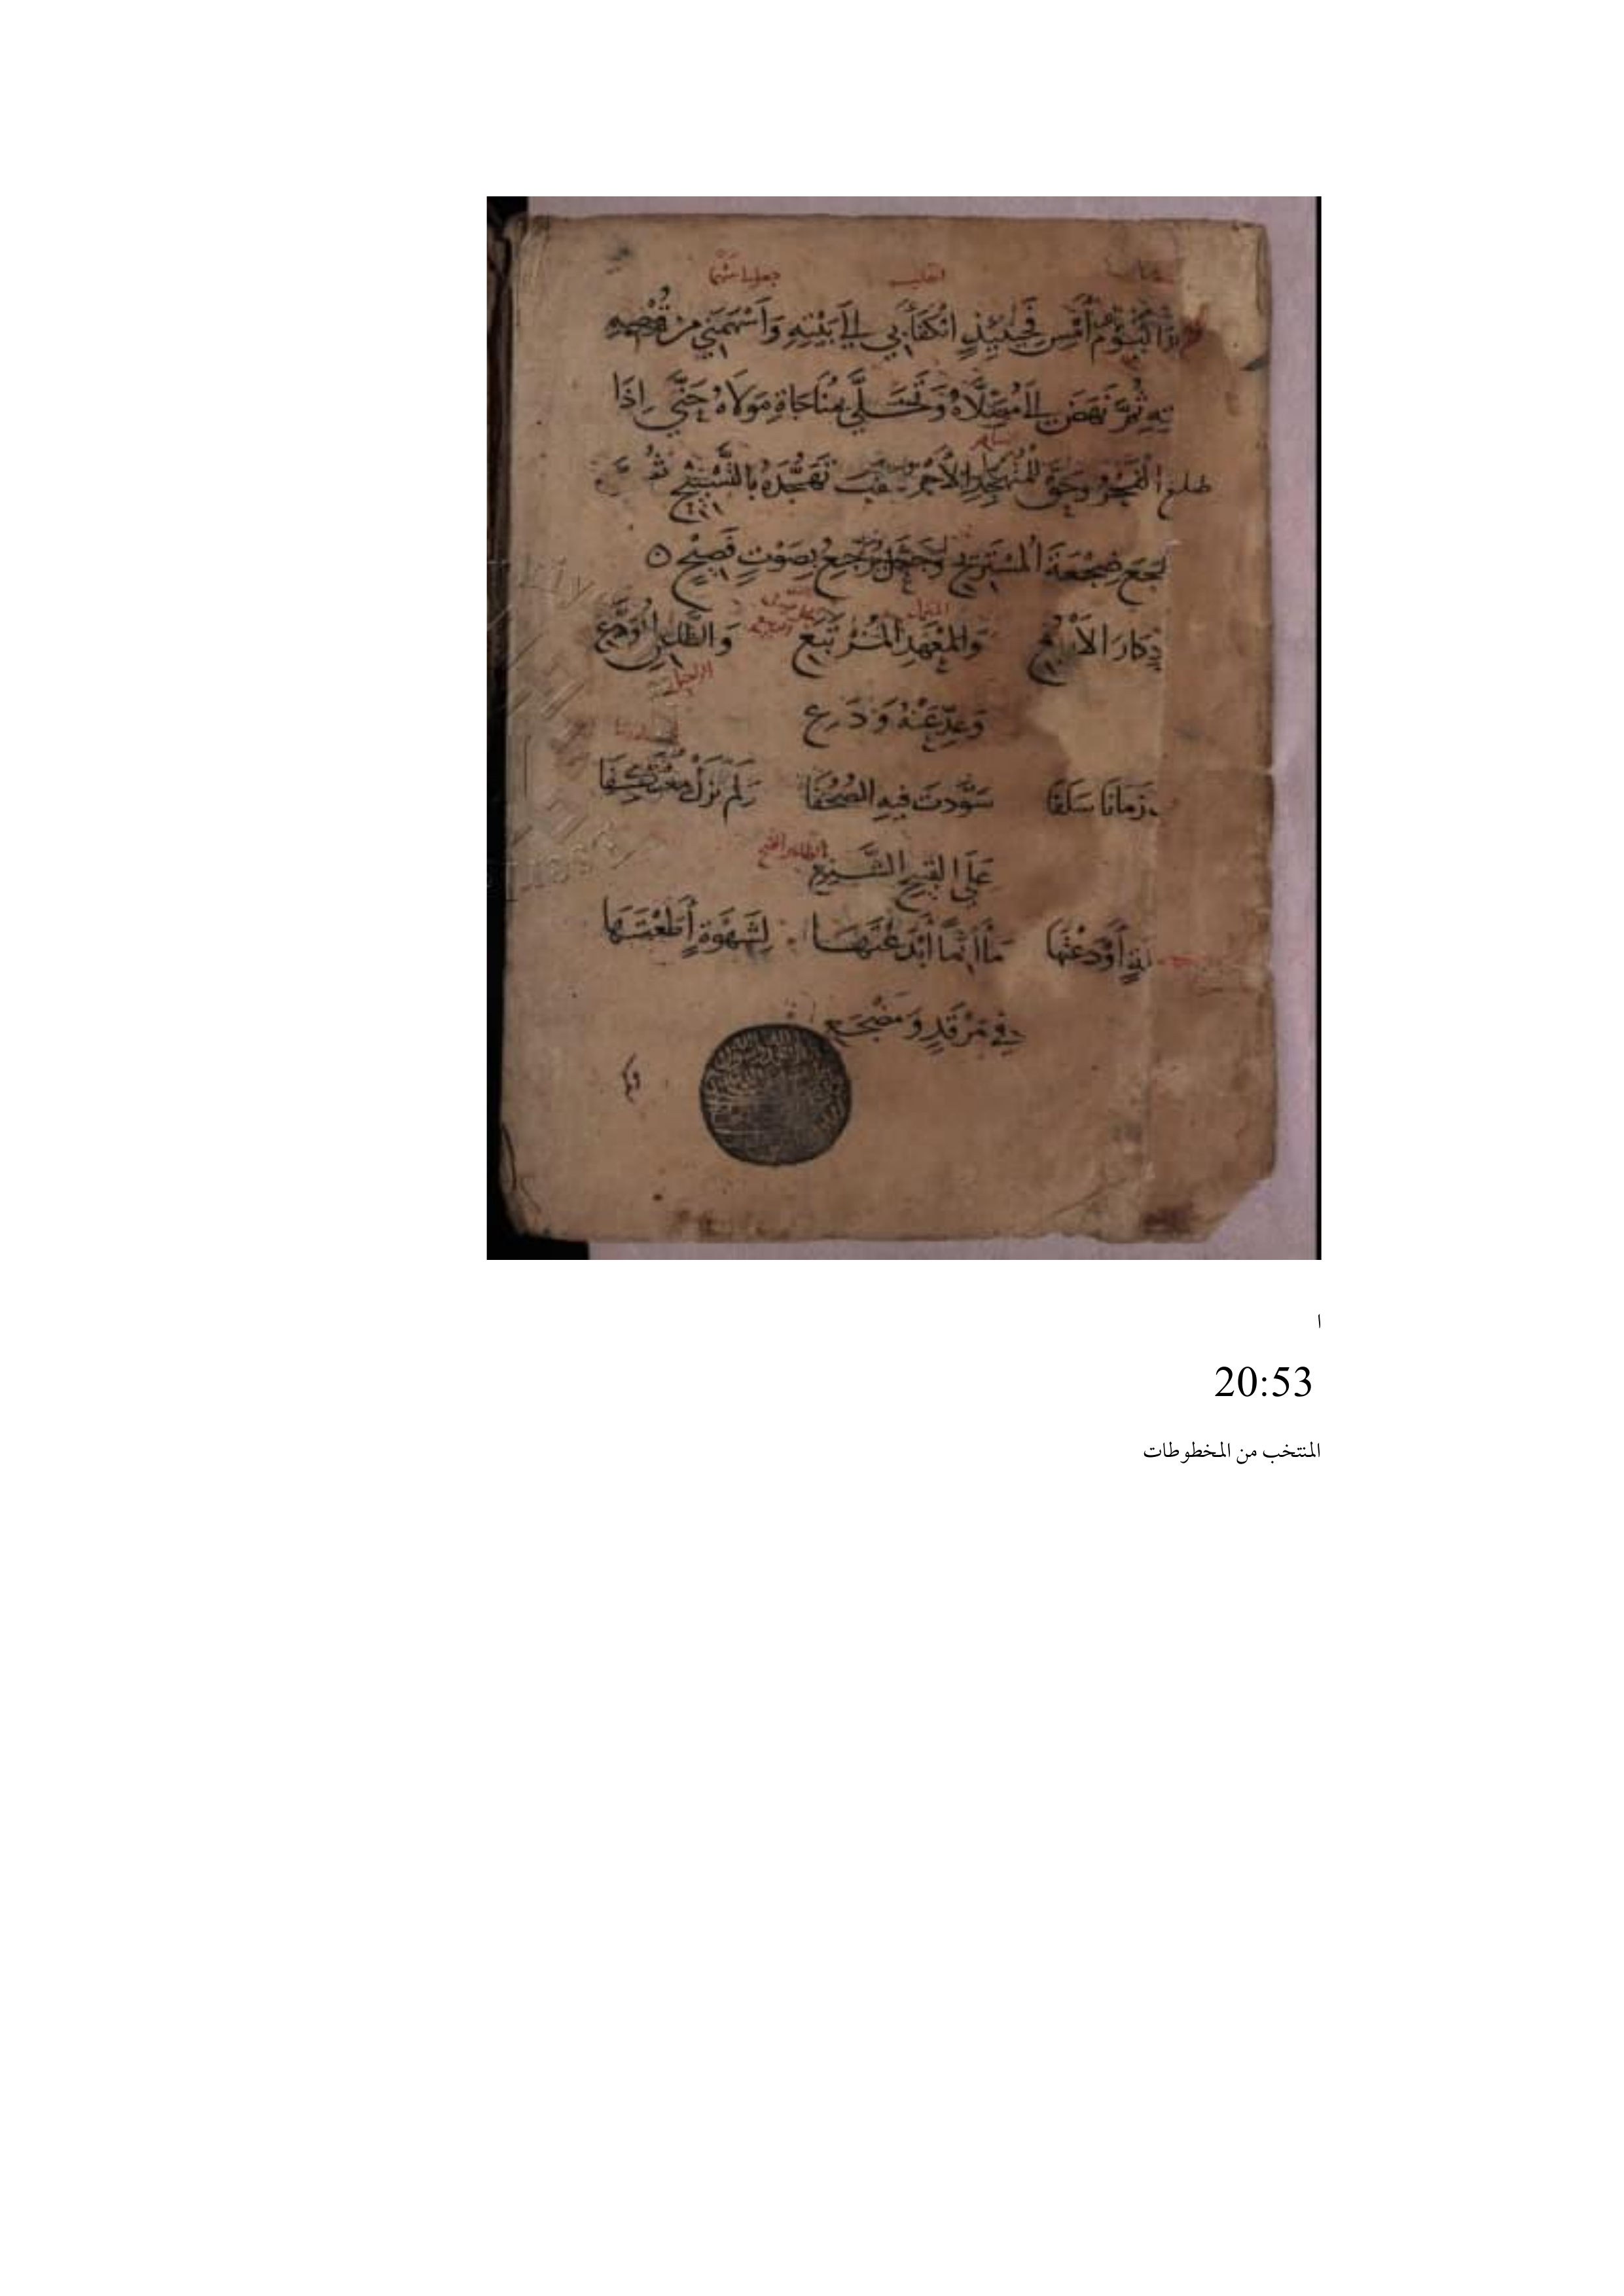 انقلب جعلها سهما
اليوم أمس فحينئذ انكفأ بي إلى بيته وأسهمني من قرصه
ته ثم نهض إلى مصلاه وتخلى بمناجاة مولاه حتى إذا
طلع الفجر وحق للمتهجد الأجر عقب تهجده بالتسبيح ثم
ضجعة المستريح وجعل يرجع بصوت فصيح
دكار الأربع والمعهد المرتبع والظاعن المودع
وعد عنه ودع
زمانا سلفا سودت فيه الصحفا ولم تزل معتكفا
على القبيح الشنع
أودعتها مآثما أبدعتها لشهوة أطعتها
في مرقد ومضجع
ا
20:53
المنتخب من المخطوطات